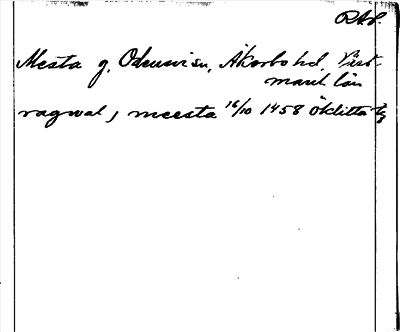 RAP.
Mesta g, Odensvi sn, Åkerbo hd, Väst-
manl. län
ragwal j meesta 16/10 1458 Öklitta tg